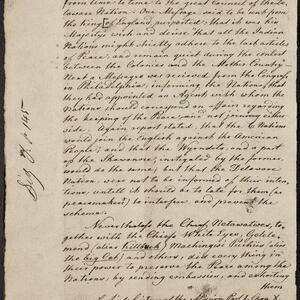 from time to time to the great Council of the De-
laware Nation. One Message said to be sent from
the King of England, purported: that it was his
Majestys wish and desire, that all the Indian
Nations might strictly adhere to the last articles
of Peace; and remain quiet during the contest
between the Colonies and the Mother Country.
Next a Message was recieved from the Congress,
in Philadelphia; informing the Nations, that
they had appointed an Agent with whom the
Nations should correspond on affairs regarding
the keeping of the Peace, and not joining either
side. Again report stated; that the 6 Nations
would join the English against the American
People; and that the Wyandots, and a part
of the Shawanose, instigated by the former,
would do the same; but that the Delaware
Nation, were not to be informed of their inten-
tions, untill it should be to late for them (as
peacemakers) to interfere, and prevent the
scheme.
Nevertheless the Chief, Netawatwes, to-
gether with the Chiefs White Eyes, Gelele-
mend (alias Killbuck) Machingwi Puschiis (alias
the big Cat) and others; did every thing in
their power to preserve the Peace among the
Nations, by sending embassies, and exhorting
them